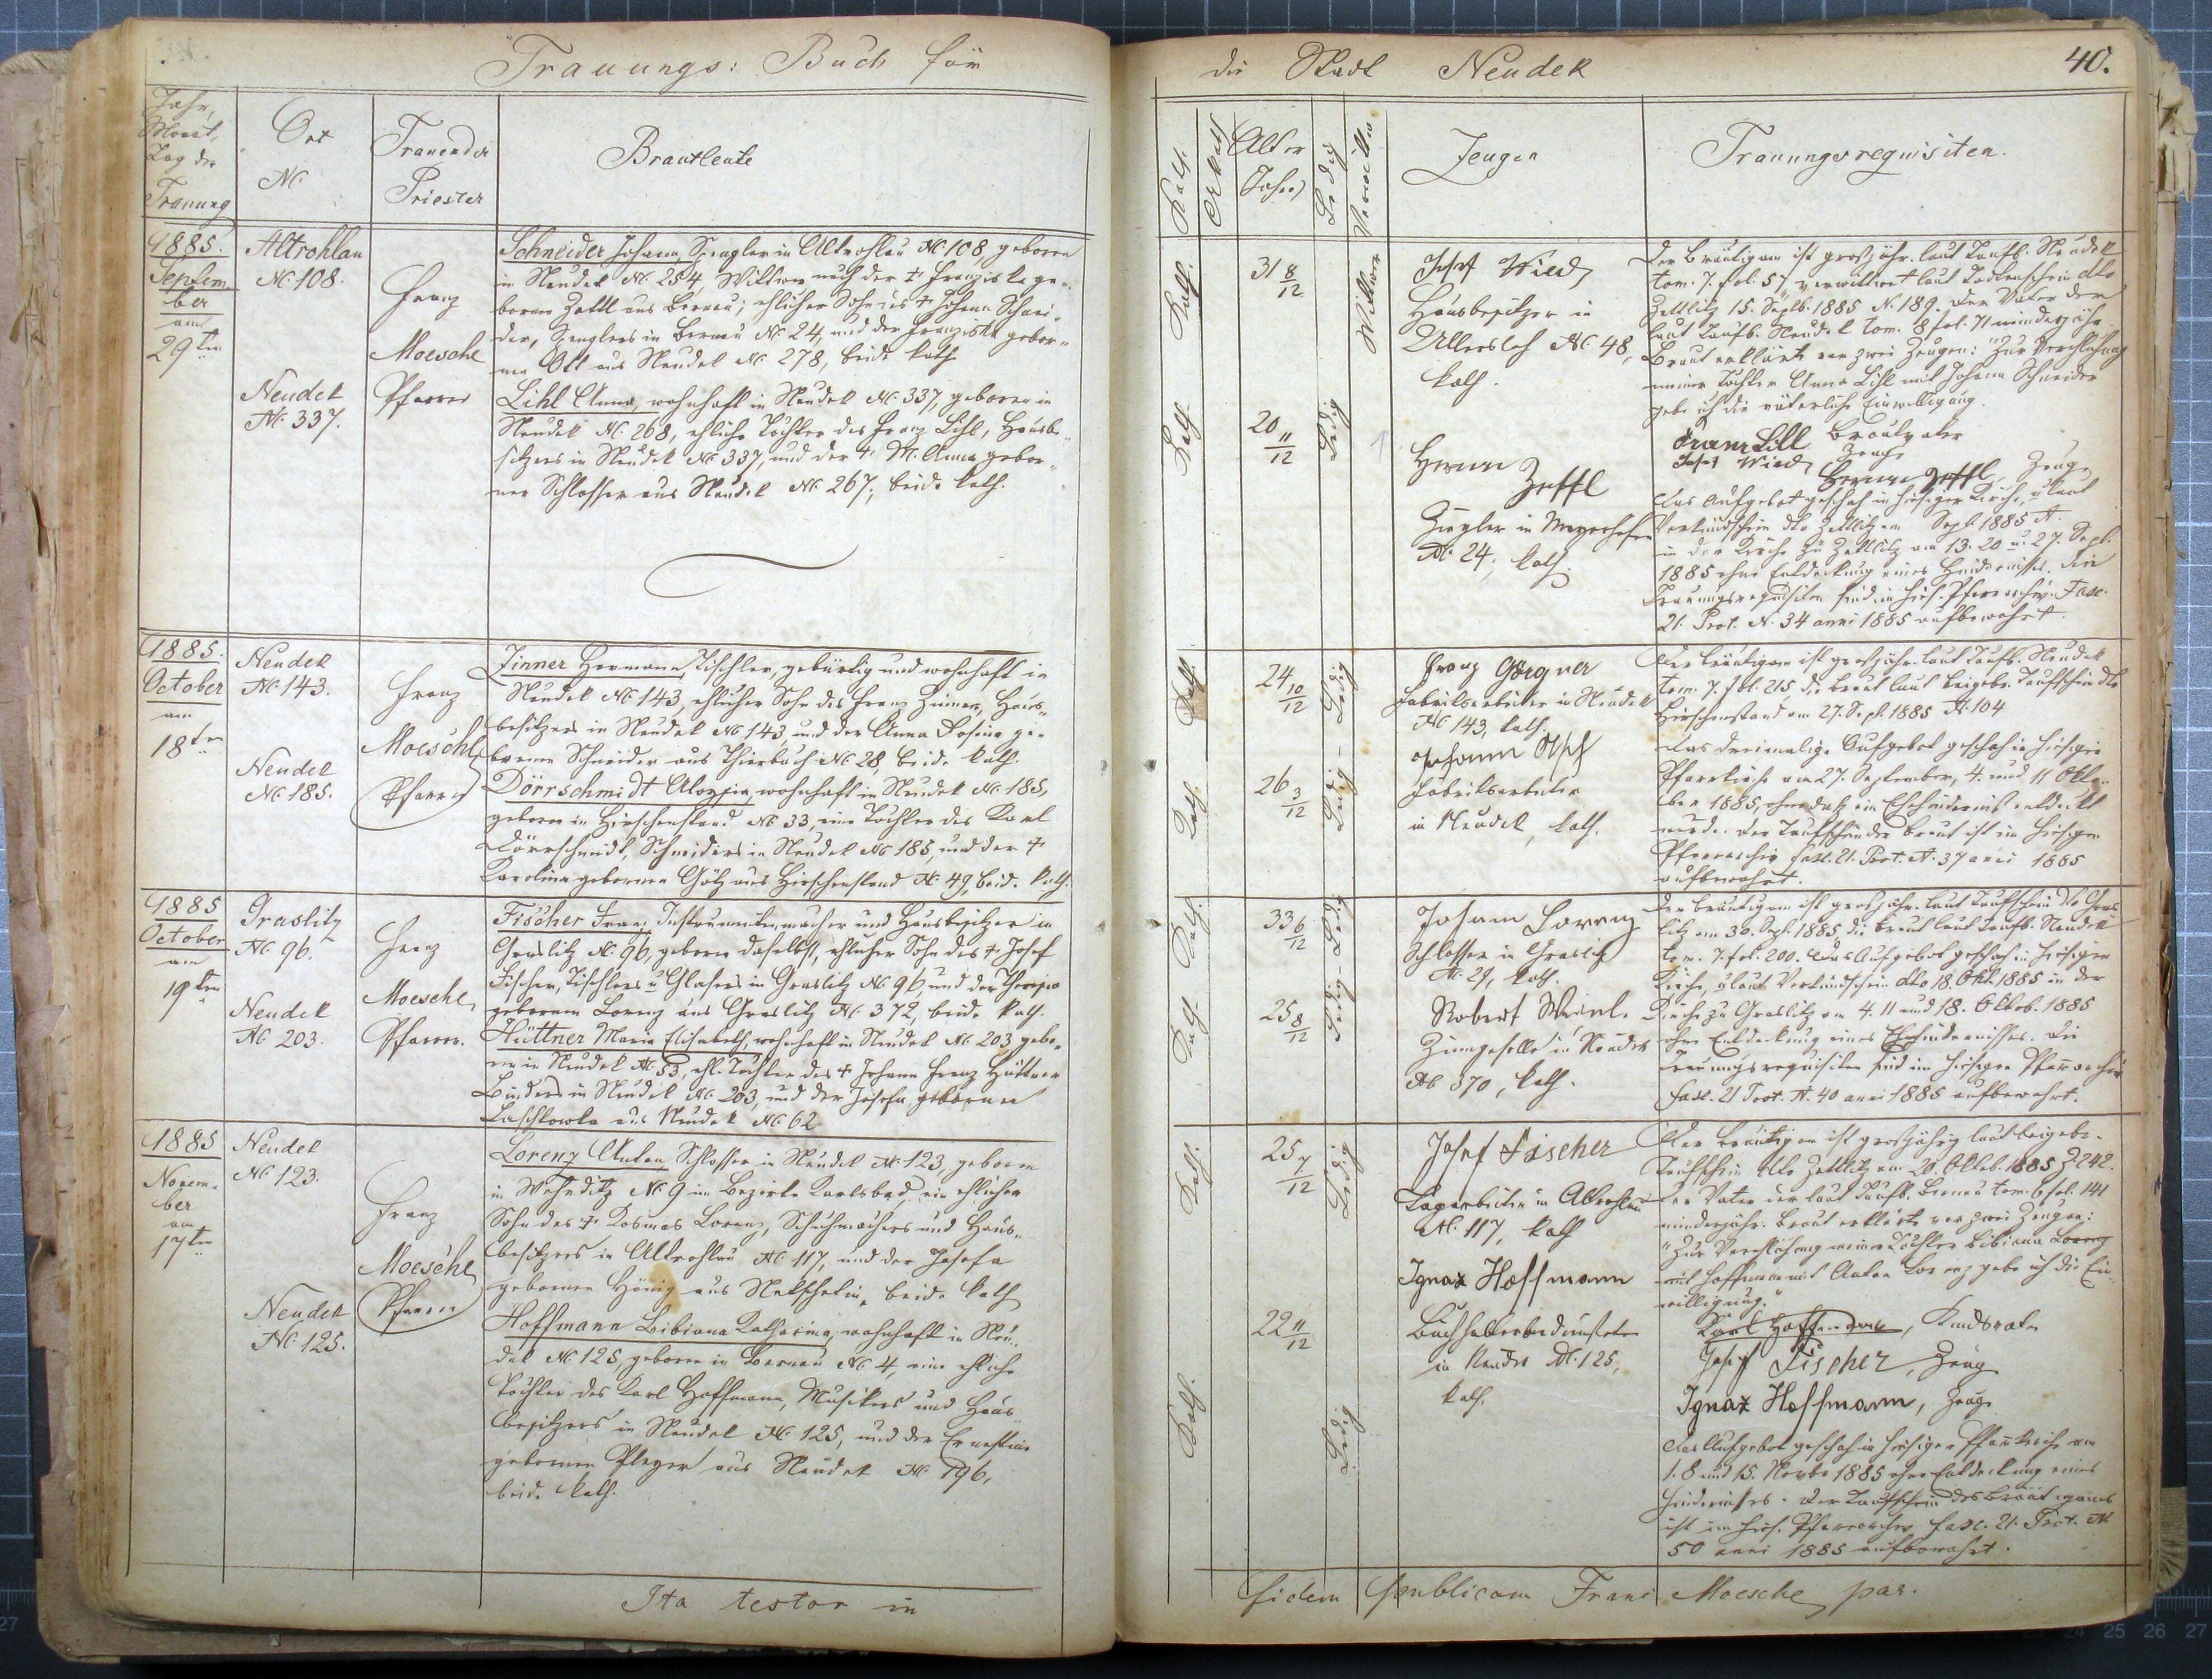 Trauungs: Buch für
Jahr,
Monat,
Tag der
Trauung
Ort
N.
Trauender
Priester
Brautleute
1885.
Septem-
ber
am
29ten
Altrohlau
N. 108.
Neudek
N. 337.
Franz
Moesche
Pfarrer
Schneider Johann, Spengler in Altrohlau N. 108, geboren
in Neudek N. 254, Witwer nach der † Franziska ge-
borenen Zettl aus Bernau; ehlicher Sohn des † Johann Schnei-
der, Spenglers in Bernau N. 24, und der Franziska gebor-
nen Ott aus Neudek N. 278, beide kath.
Lihl Anna, wohnhaft in Neudek N. 337, geboren in
Neudek N. 268, ehliche Tochter des Franz Lihl, Hausbe-
sitzers in Neudek N. 337, und der † M. Anna gebor-
nen Schlosser aus Neudek N. 267; beide kath.
1885.
October
am
18ten
Neudek
N. 143.
Neudek
N. 185.
Franz
Moesche
Pfarrer
Zinner Hermann, Tischler, gebürtig und wohnhaft in
Neudek N. 143, ehlicher Sohn des Franz Zinner, Haus-
besitzers in Neudek N. 143 und der Anna Rosina ge-
borenen Schneider aus Thierbach N. 28, beide kath.
Dörrschmidt Aloysia, wohnhaft in Neudek N. 185,
geboren in Hirschenstand N. 33, eine Tochter des Karl
Dörrschmidt, Schneiders in Neudek N. 185, und der †
Karolina gebornen Götz aus Hirschenstand N. 49, beide kath.
1885
October
am
19ten
Graslitz
N. 96.
Neudek
N. 203.
Franz
Moesche
Pfarrer.
Fischer Franz, Instrumentenmacher und Hausbesitzer in
Graslitz N. 96, geboren daselbst, ehlicher Sohn des † Josef
Fischer, Tischlers u Glasers in Graslitz N. 96 und der Theresia
gebornen Lorenz aus Graslitz N. 372, beide kath.
Hüttner Maria Elisabeth, wohnhaft in Neudek N. 203, gebo-
ren in Neudek N. 53, ehl. Tochter des † Johann Franz Hüttner
Binders in Neudek N. 203, und der Josefa gebornen
aus Neudek N. 62
1885
Novem-
ber
am
17ten
Neudek
N. 123.
Neudek
N. 125.
Franz
Moesche
Pfarrer
Lorenz Anton, Schlosser in Neudek N. 123, geboren
in Wehnditz N. 9 im Bezirke Karlsbad, ein ehlicher
Sohn des † Kosmas Lorenz, Schuhmachers und Haus-
besitzers in Altrohlau N. 117, und der Josefa
gebornen Hönig aus Netschetin, beide kath
Hoffmann Bibiana Katharina, wohnhaft in Neu-
dek N. 125, geboren in Bernau N. 4, eine ehliche
Tochter des Karl Hoffmann, Musikers und Haus-
besitzers in Neudek N. 125, und der Ernestine
gebornen Pleyer aus Neudek N. 196,
beide kath.
Ita testor in
die Stadt Neudek
40.
Kath.
Akath
Alter
Jahre
Ledig
Verwittw.
Zeugen
Trauungsrequisiten.
Kath.
31 8/12
Witwer
Kath.
20 11/12
Ledig
Josef Wied
Hausbesitzer in
Ullersloh N. 48,
kath.
Herman
Zettl
Ziegler in Mayerhöfen
N. 24, kath.
Der Bräutigam ist großjähr. laut Taufb. Neudek
tom. 7. fol. 57, verwittwet laut Todtenschein dto
Zettlitz 15. Septb. 1885 N. 189. Der Vater der
laut Taufb. Neudek tom. 8 fol. 71 minderjähr.
Braut erklärte vor zwei Zeugen: "Zur Verehlichung
meiner Tochter Anna Lihl mit Johann Schneider
gebe ich die väterliche Einwilligung.
Franz Lill Brautvater
Josef Wied Zeuge
Herman Zettl Zeuge
Das Aufgebot geschah in hiesiger Kirche, u laut
Verkündschein dto Zettlitz am Sept. 1885 N.
in der Kirche zu Zettlitz am 13. 20 u. 27. Sept.
1885 ohne Entdeckung eines Hindernisses. Die
Trauungsrequisiten sind im hies. Pfarrarchiv. Fasc.
21. Prot. N. 34 anni 1885 aufbewahrt.
Kath.
24 10/12
Ledig
Kath.
26 3/12
Ledig
Franz
Fabriksarbeiter in Neudek
N. 143, kath.
Johann
Fabriksarbeiter
in Neudek, kath.
Der Bräutigam ist großjähr. laut Taufb. Neudek
tom. 7. fol. 215 die Braut laut beigebr. Taufschein dto
Hirschenstand am 27. Sept. 1885 N. 104
Das dreimalige Aufgebot geschah in hiesiger
Pfarrkirche am 27. September, 4. und 11 Okto-
ber 1885, ohne daß ein Ehehinderniß entdeckt
wurde. Der Taufschein der Braut ist im hiesigen
Pfarrarchiv Fasc. 21. Prot. N. 37 anni 1885
aufbewahrt.
Kath.
33 6/12
Ledig
Kath.
25 8/12
Ledig
Johann Lorenz
Schlosser in Graslitz
N. 29, kath.
Robert
Zimmgeselle in Neudek
N. 370, kath.
Der Bräutigam ist großjähr. laut Taufschein dto Gras-
litz am 30. Sept. 1885 die Braut laut Taufb. Neudek
tom. 7. fol. 200. Das Aufgebot geschah in hiesiger
Kirche, u laut Verkündschein dto 18. Okt. 1885 in der
Kirche zu Graslitz am 4. 11 und 18. Oktob. 1885
ohne Entdeckung eines Ehehindernisses. Die
Trauungsrequisiten sind im hiesigen Pfarrarchiv
Fasc. 21 Prot. N. 40 anni 1885 aufbewahrt.
Kath.
25 7/12
Ledig
Kath.
22 11/12
Ledig
Josef Fischer
Tagarbeiter in Altrohlau
N. 117, kath
Ignaz Hoffmann
in Neudek N. 125,
kath.
Der Bräutigam ist großjährig laut beigebr.
Taufschein dto Zettlitz am 20. Oktob. 1885 Z. 242.
Der Vater der laut Taufb. Bernau tom. 6 fol. 141
minderjähr. Braut erklärte vor zwei Zeugen:
"Zur Verehlichung meiner Tochter Bibiana Lorenz
Hoffmann mit Anton Lorenz gebe ich die Ein-
willigung."
Karl Hoffmann, Kindsvater
Josef Fischer, Zeug
Ignaz Hoffmann, Zeuge
Das Aufgebot geschah in hiesiger Pfarrkirche am
1. 8 und 15. Novbr 1885 ohne Entdeckung eines
Hindernisses. Der Taufschein des Bräutigams
ist im hies. Pfarrarchiv Fasc. 21. Prot. N
50 anni 1885 aufbewahrt.
fidem publicam Franc Moesche par.